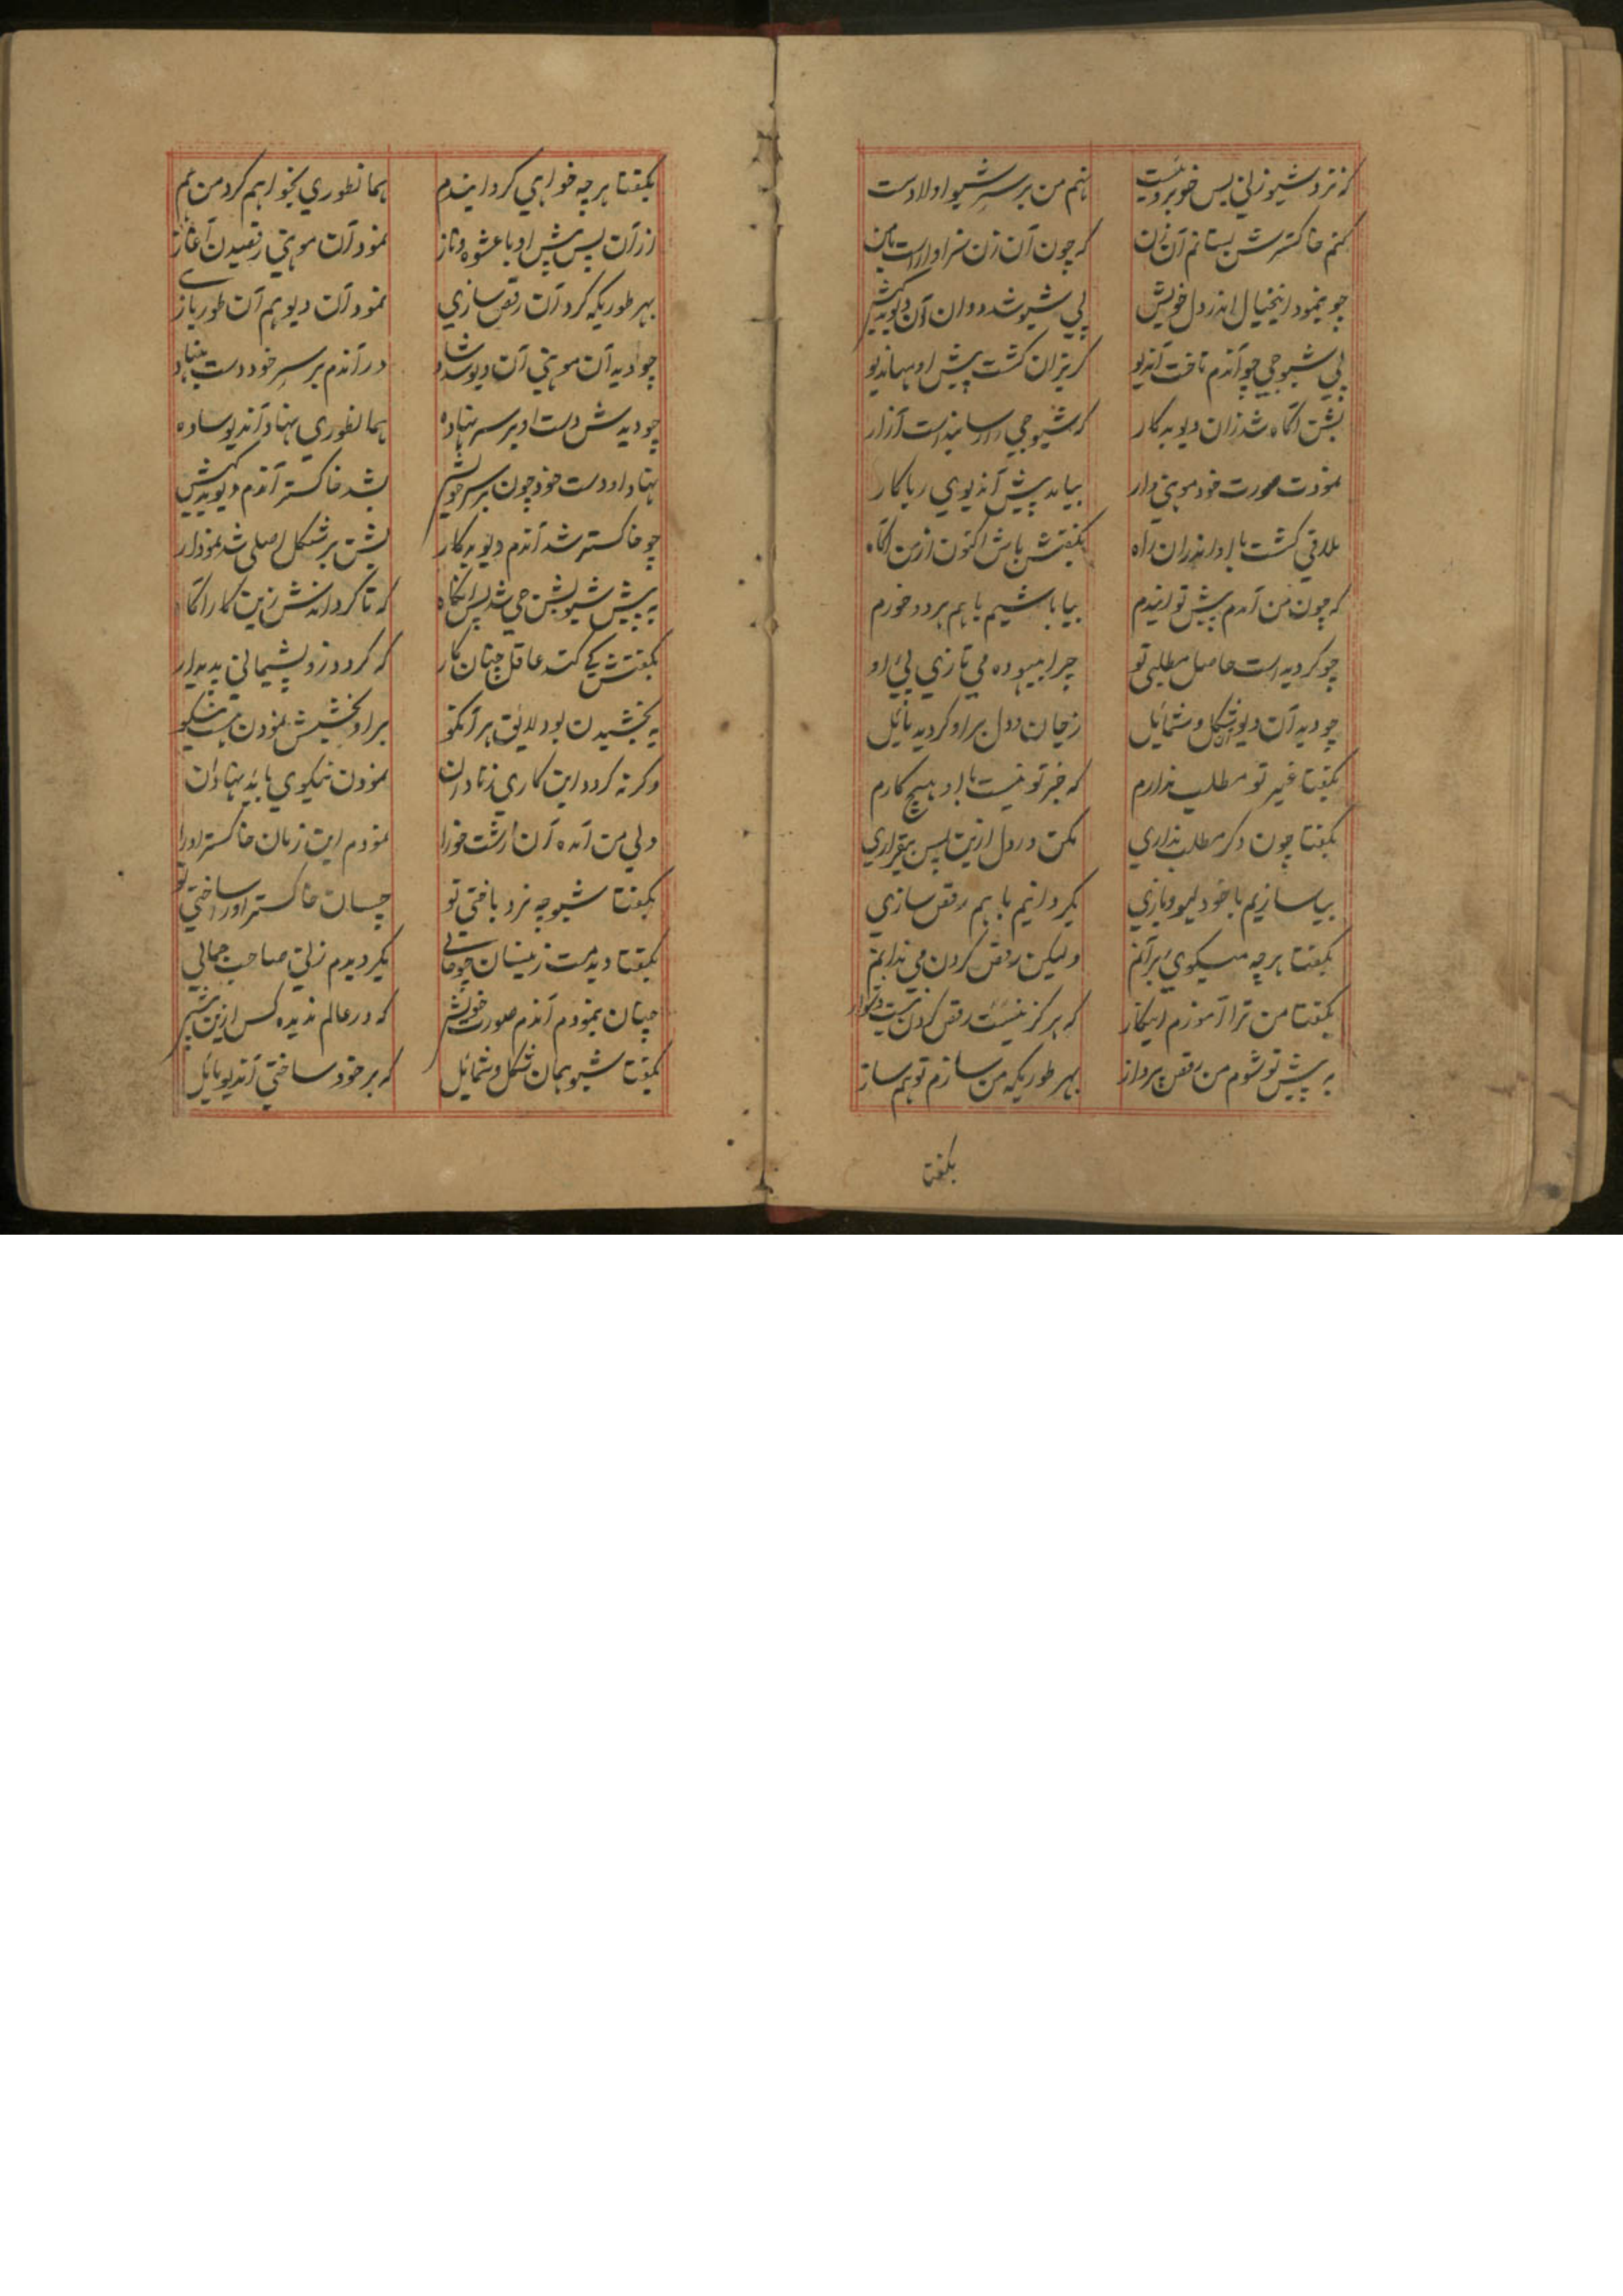 که نزد شیو زنی بس خوبرویست نهم من بر سر شیو اولا دست
کنم خاکسترش بستانم آن زن که چون آن زن سزاوار است با من
چو بنمود اینخیال اندر دل خویش پی شیو شد دوان آن دیو بدکیش
پی شیو جی چو آندم تاخت آندیو گریزان گشت پیش او هماندیو
بشن آگاه شد زان دیو بدکار که شیو جی را رسانیداست آزار
نمودت صورت خود موهنی وار بیامد پیش آندیوی ریاکار
ملاقی گشت با او اندران راه بگفتش باش اکنون از من آگاه
که چون من آمدم پیش تو ایندم بیا باشیم با هم هر دو خورم
چو گردیداست حاصل مطلبی تو چرا بیهوده می تازی پیٔ او
چو دید آن دیو آن شکل و شمائل زجان و دل براو گردید مائل
بگفتا غیر تو مطلب ندارم که جز تو نیست با او هیچ کارم
بگفتا چون دگر مطلب نداری مکن در دل ازین پس بیقراری
بیا سازیم با خود لهو و بازی بگردانیم با هم رقص سازی
بگفتا هر چه میگویٔ برآنم ولیکن رقص کردن می ندانم
بگفتا من ترا آموزم اینکار که هرگز نیست رقص کردن دشوار
به پیش تو شوم من رقص پرداز بهر طوریکه من سازم تو هم ساز
بگفتا
بگفتا هر چه خواهی کرد ایندم همانطوری بخواهم کرد من هم
ازآن پس پیش او با عشوه و ناز نمود آن موهنی رقصیدن آغاز
بهر طوریکه کرد آن رقص سازی نمود آن دیو هم آن طور بازی
چو دید آن موهنی آن دیو شد شاد در آندم بر سر خود دست بنهاد
چو دیدش دست او بر سر نهاده همانطوری نهاد آندیو ساده
نهاد او دست خود چون بر سر خویش بشد خاکستر آندم دیو بدکیش
چو خاکستر شد آندم دیو بدکار بشن بر شکل اصلی شد نمودار
به پیش شیو بشن جی شد پس آنگاه که تا گرداندش زین کار آگاه
بگفتش کی کند عاقل چنان کار که گردد زو پشیمانی پدیدار
ببخشیدن بود لایق هر آنکو براو بخشش نمودن هست نیکو
وگرنه گردد این کاری زنادان نمودن نیکوی باید بنادان
ولی من آمده آن زشت خو را نمودم این زمان خاکستر او را
بگفتا شیو چه نرد باختی تو چسان خاکستر او را ساختی تو
بگفتا دیدمت زینسان چو حالی بگردیدم زنی صاحب جمالی
چنان بنمودم آندم صورت خویش که در عالم ندیده کس ازین پیش
بگفتا شیو همان شکل و شمائل که بر خود ساختی آندیو مائل